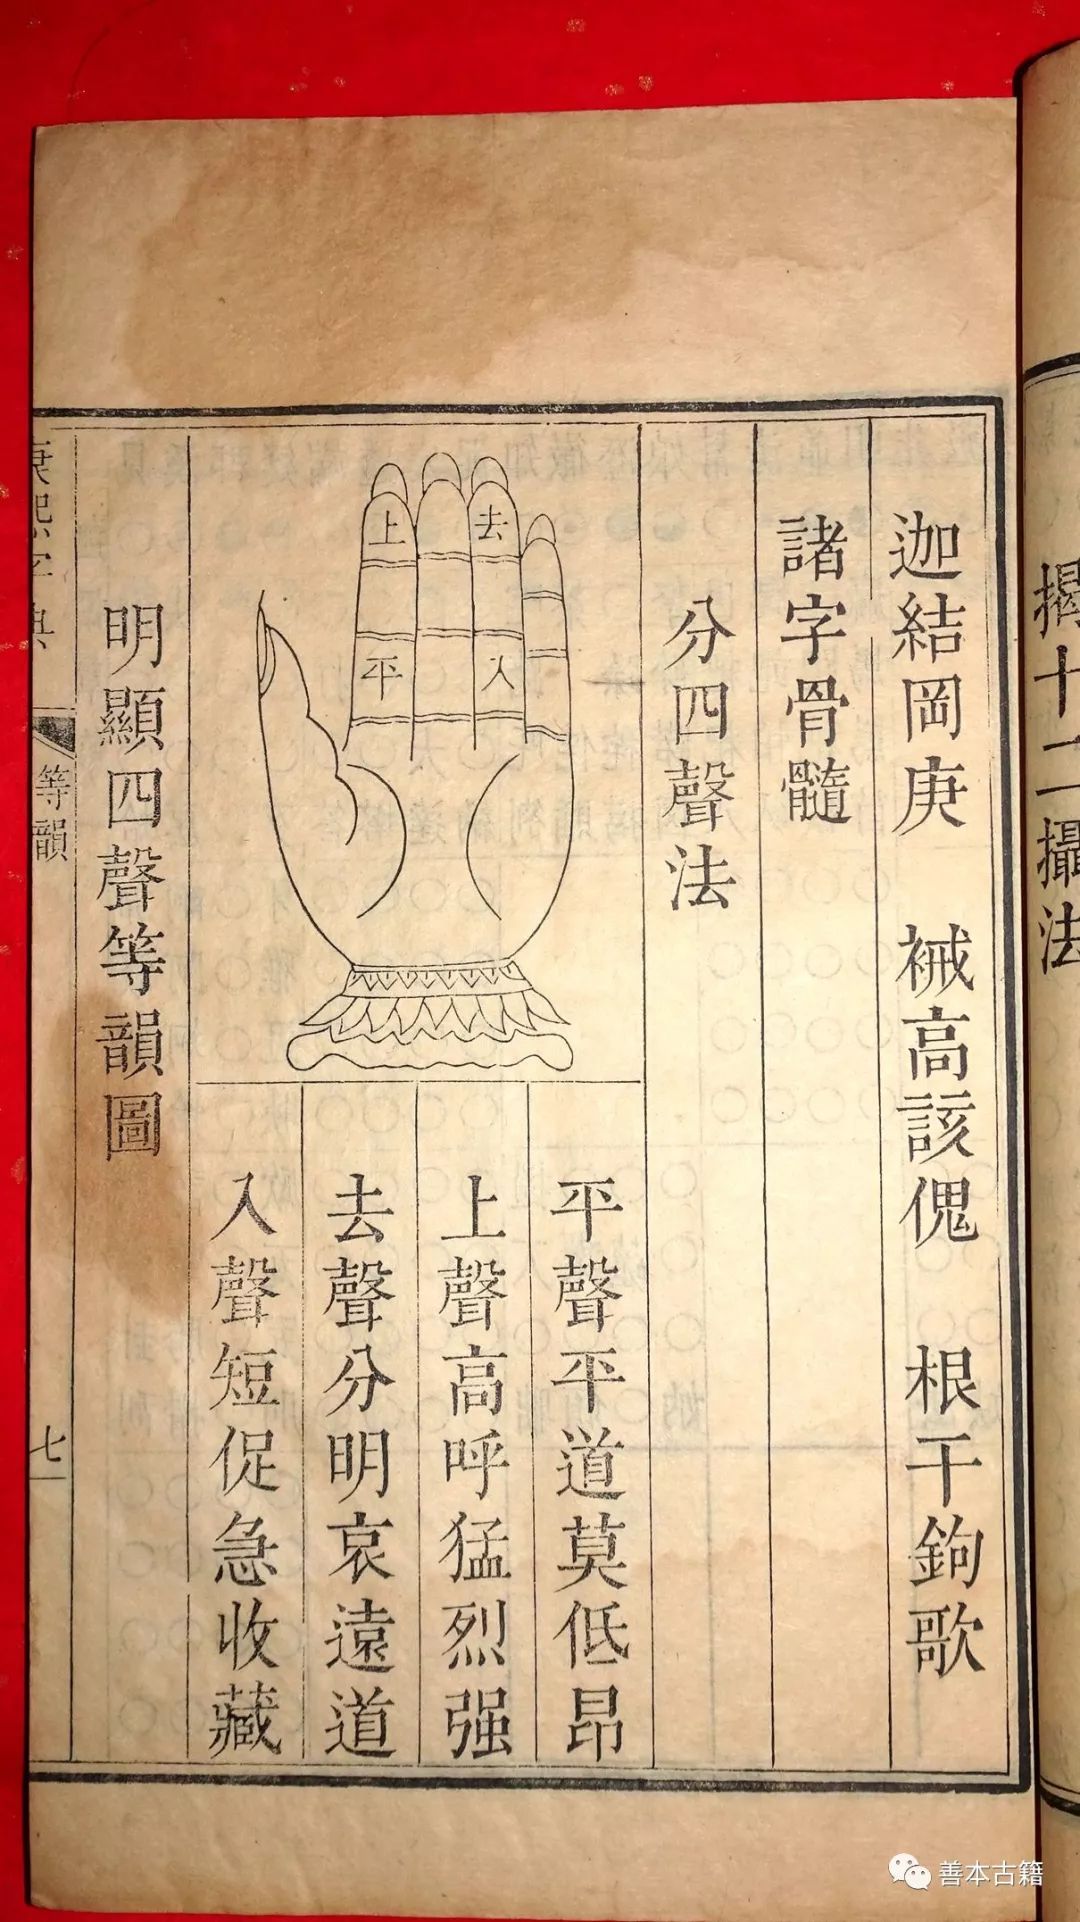 揭十二攝法
迦結岡庚　祴高該傀　根干鉤歌
諸字骨髓
分四聲法
上　去
平　入
平聲平道莫低昂
上聲高呼猛烈强
去聲分明哀遠道
入聲短促急收藏
明顯四聲等韻圖
康熙字典
等韻
七
善本古籍